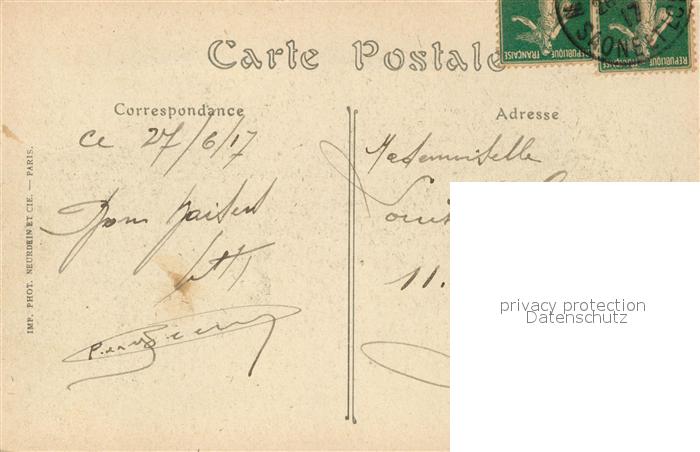 Carte Postale
RÉPUBLIQUE FRANÇAISE
RÉPUBLIQUE FRANÇAISE
17
Correspondance
ce 27/6/17
Bons baisers
IMP. PHOT. NEURDEIN ET CIE. — PARIS.
Adresse
Mademoiselle
11.
privacy protection
Datenschutz